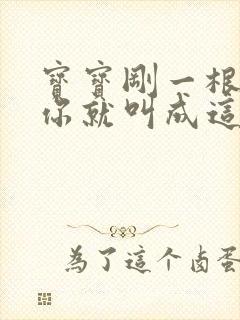 寶寶剛一根
你就叫成這
為了這个卤蛋